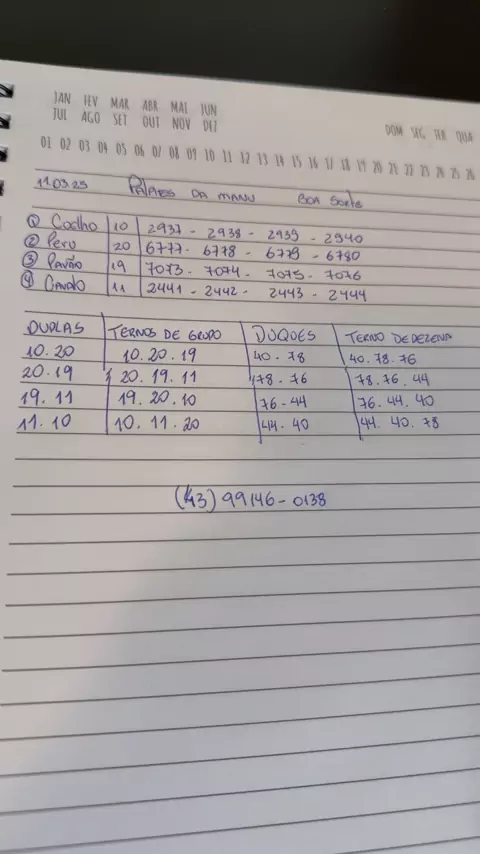 JAN FEV MAR ABR MAI JUN
JUL AGO SET OUT NOV DEZ
DOM SEG TER QUA
01 02 03 04 05 06 07 08 09 10 11 12 13 14 15 16 17 18 19 20 21 22 23 24 25 26
11.03.25 Palpites DA MANU BOA Sorte
① Coelho 10 2937 - 2938 - 2939 - 2940
② Peru 20 6777 - 6778 - 6779 - 6780
③ Pavão 19 7073 - 7074 - 7075 - 7076
④ Cavalo 11 2441 - 2442 - 2443 - 2444
DUPLAS TERNOS DE GRUPO DUQUES TERNO DE DEZENA
10.20 10.20.19 40 - 78 40.78.76
20.19 20.19.11 78 - 76 78.76.44
19.11 19.20.10 76 - 44 76.44.40
11.10 10.11.20 44.40 44.40.78
(43) 99146-0138